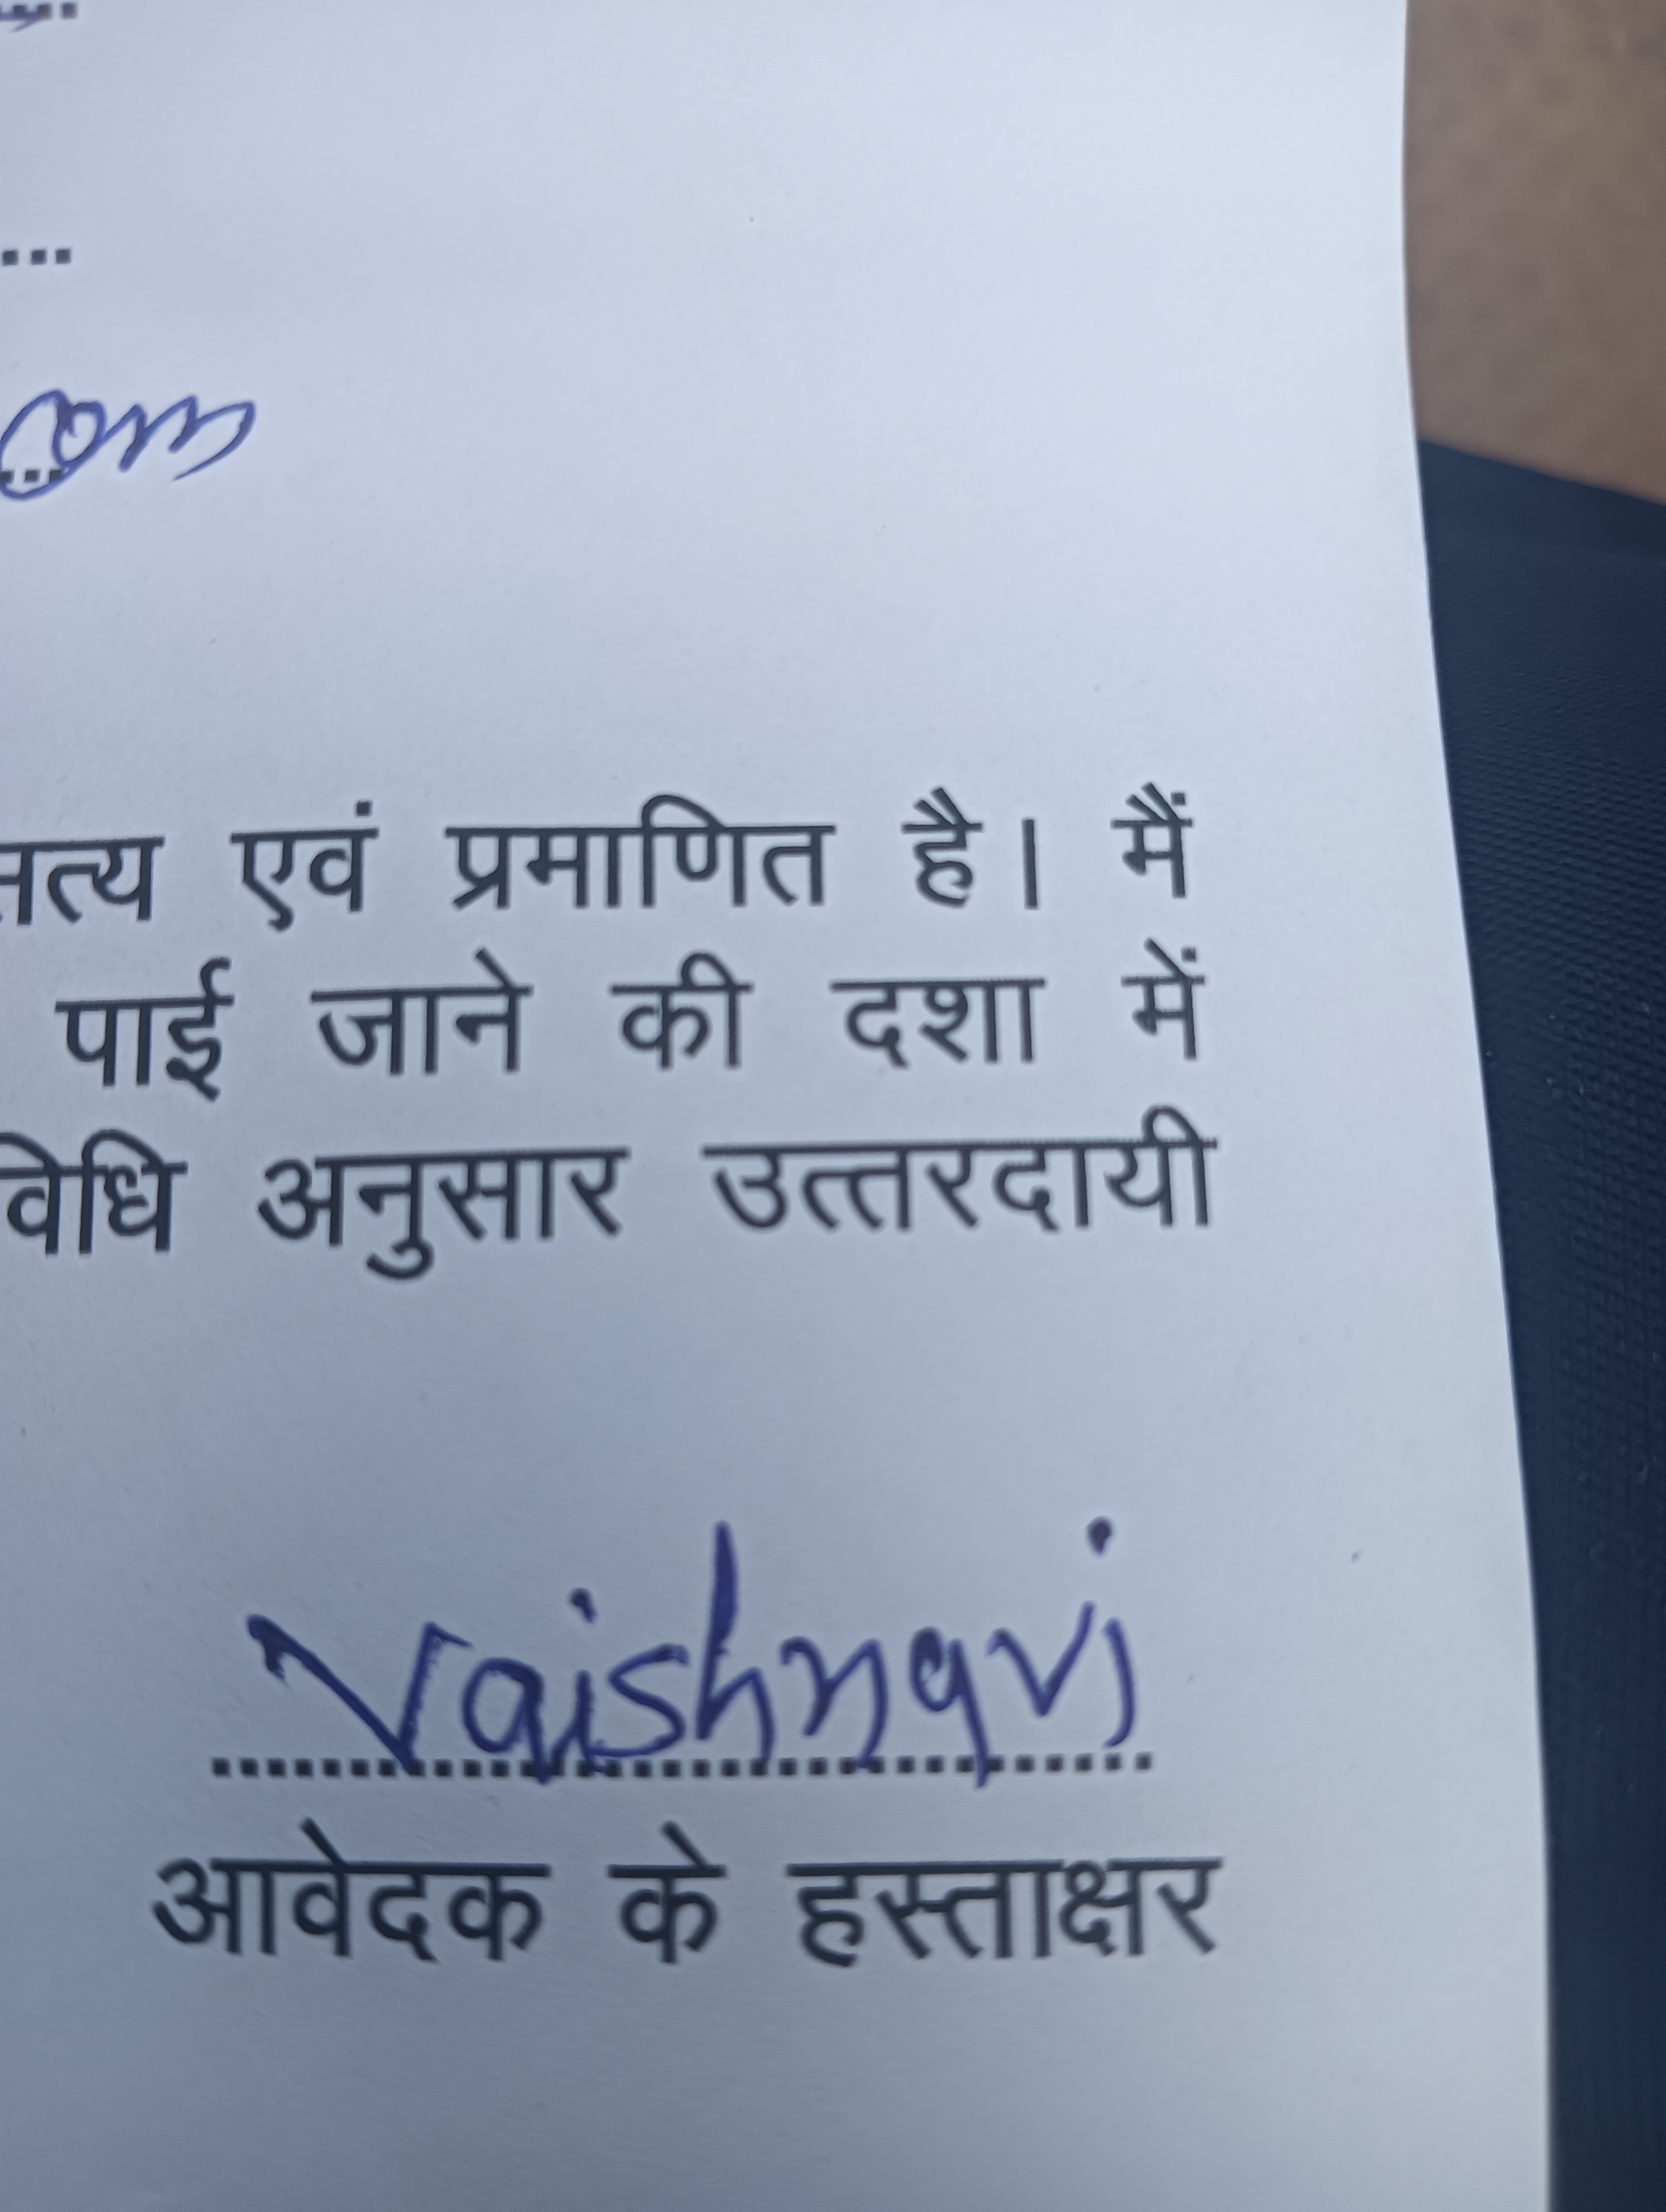 ...
com
सत्य एवं प्रमाणित है। मैं
पाई जाने की दशा में
विधि अनुसार उत्तरदायी
Vaishnavi
आवेदक के हस्ताक्षर